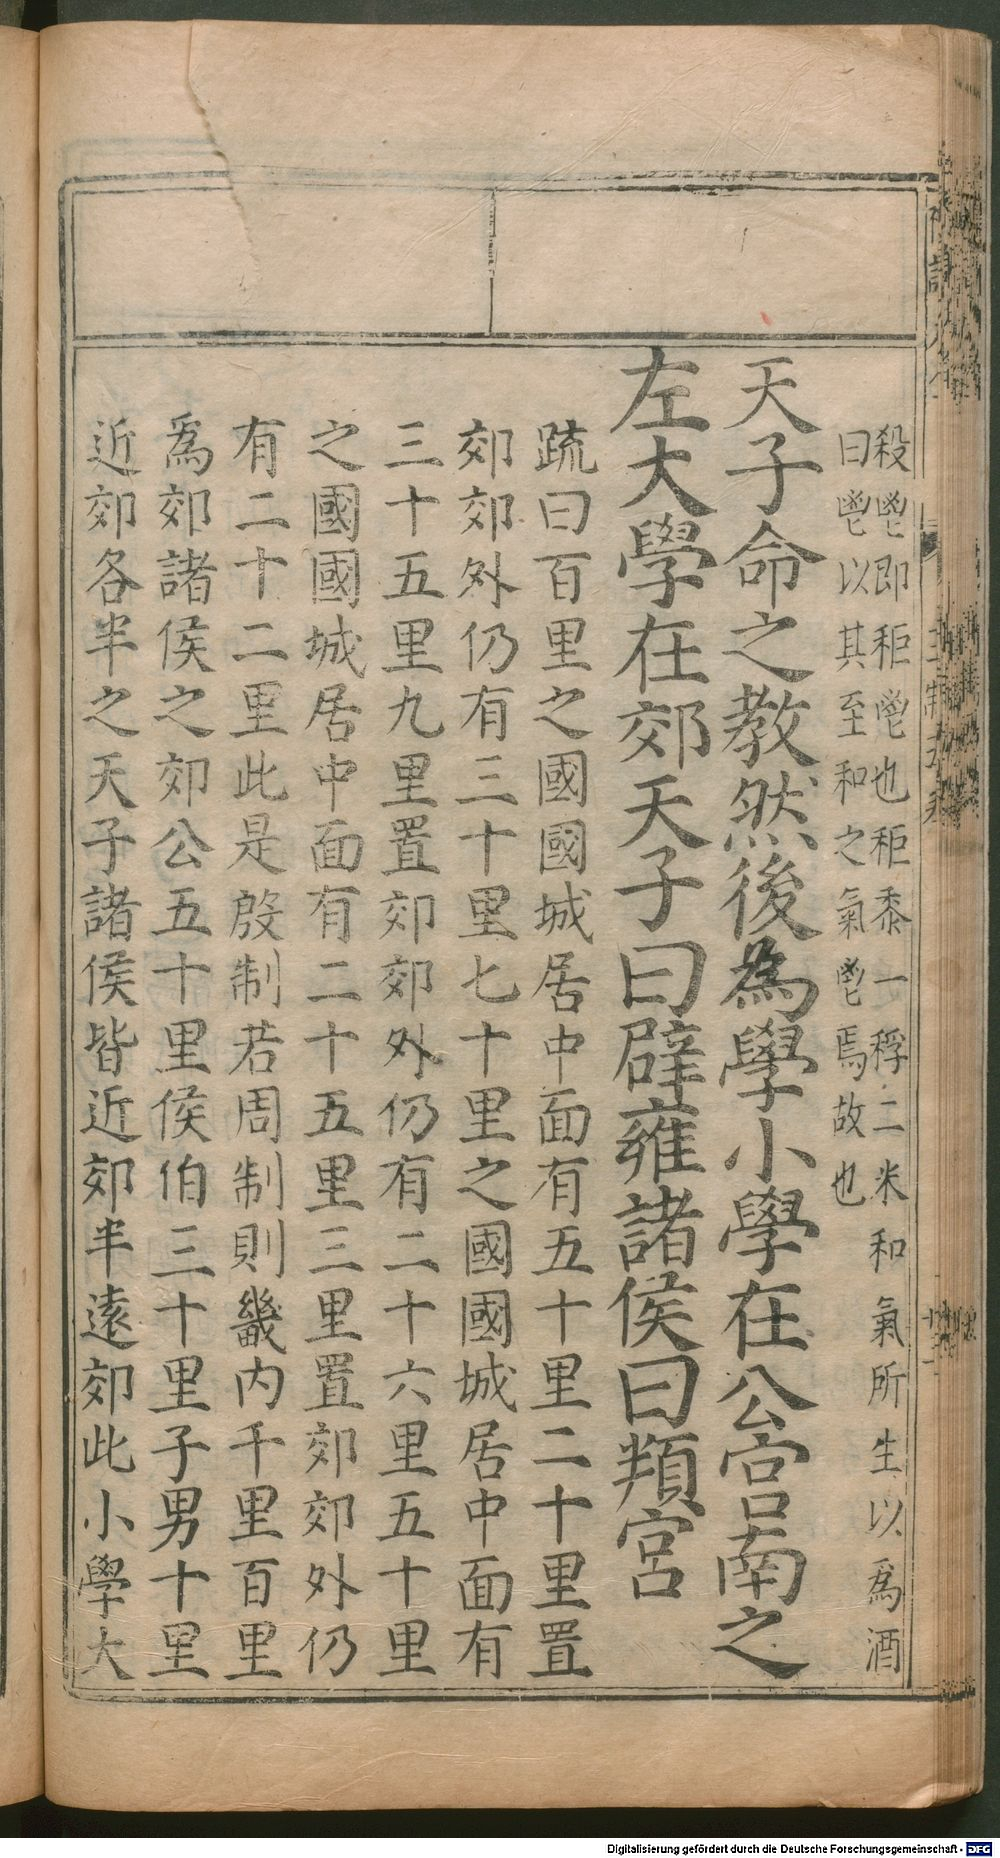 殺鬯即秬鬯也秬黍一稃二米和氣所生以爲酒
曰鬯以其至和之氣鬯焉故也
天子命之教然後為學小學在公宮南之
左大學在郊天子曰辟雍諸侯曰頖宮
疏曰百里之國國城居中面有五十里二十里置
郊郊外仍有三十里七十里之國國城居中面有
三十五里九里置郊郊外仍有二十六里五十里
之國國城居中面有二十五里三里置郊郊外仍
有二十二里此是殷制若周制則畿内千里百里
爲郊諸侯之郊公五十里侯伯三十里子男十里
近郊各半之天子諸侯皆近郊半遠郊此小學大
Digitalisierung gefördert durch die Deutsche Forschungsgemeinschaft - DFG